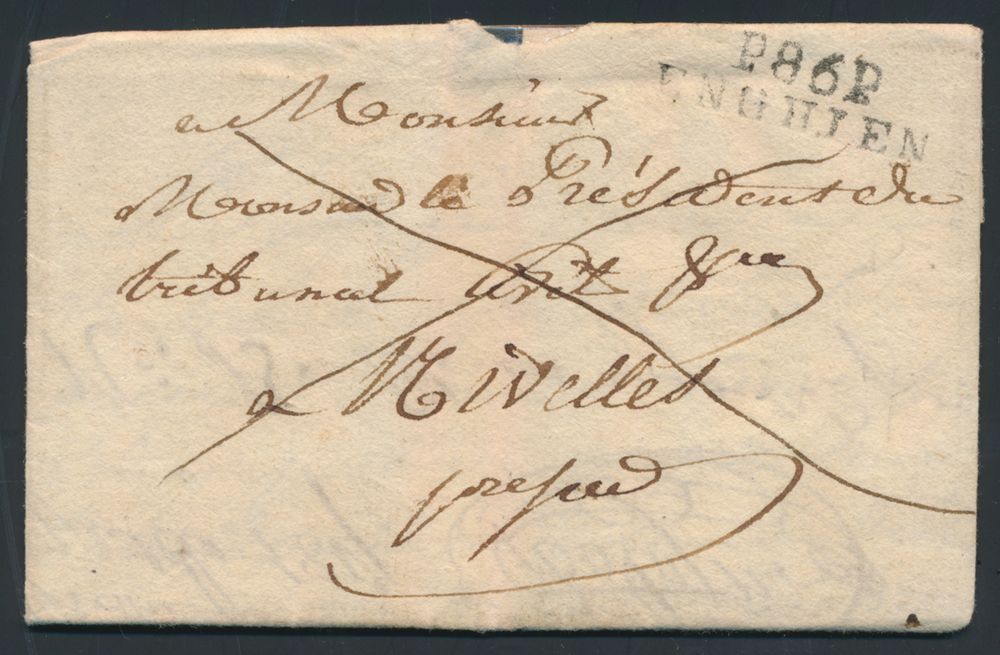 P86P
ENGHIEN
a Monsieur
Monsieur le Président du
tribunal
a Nivelles